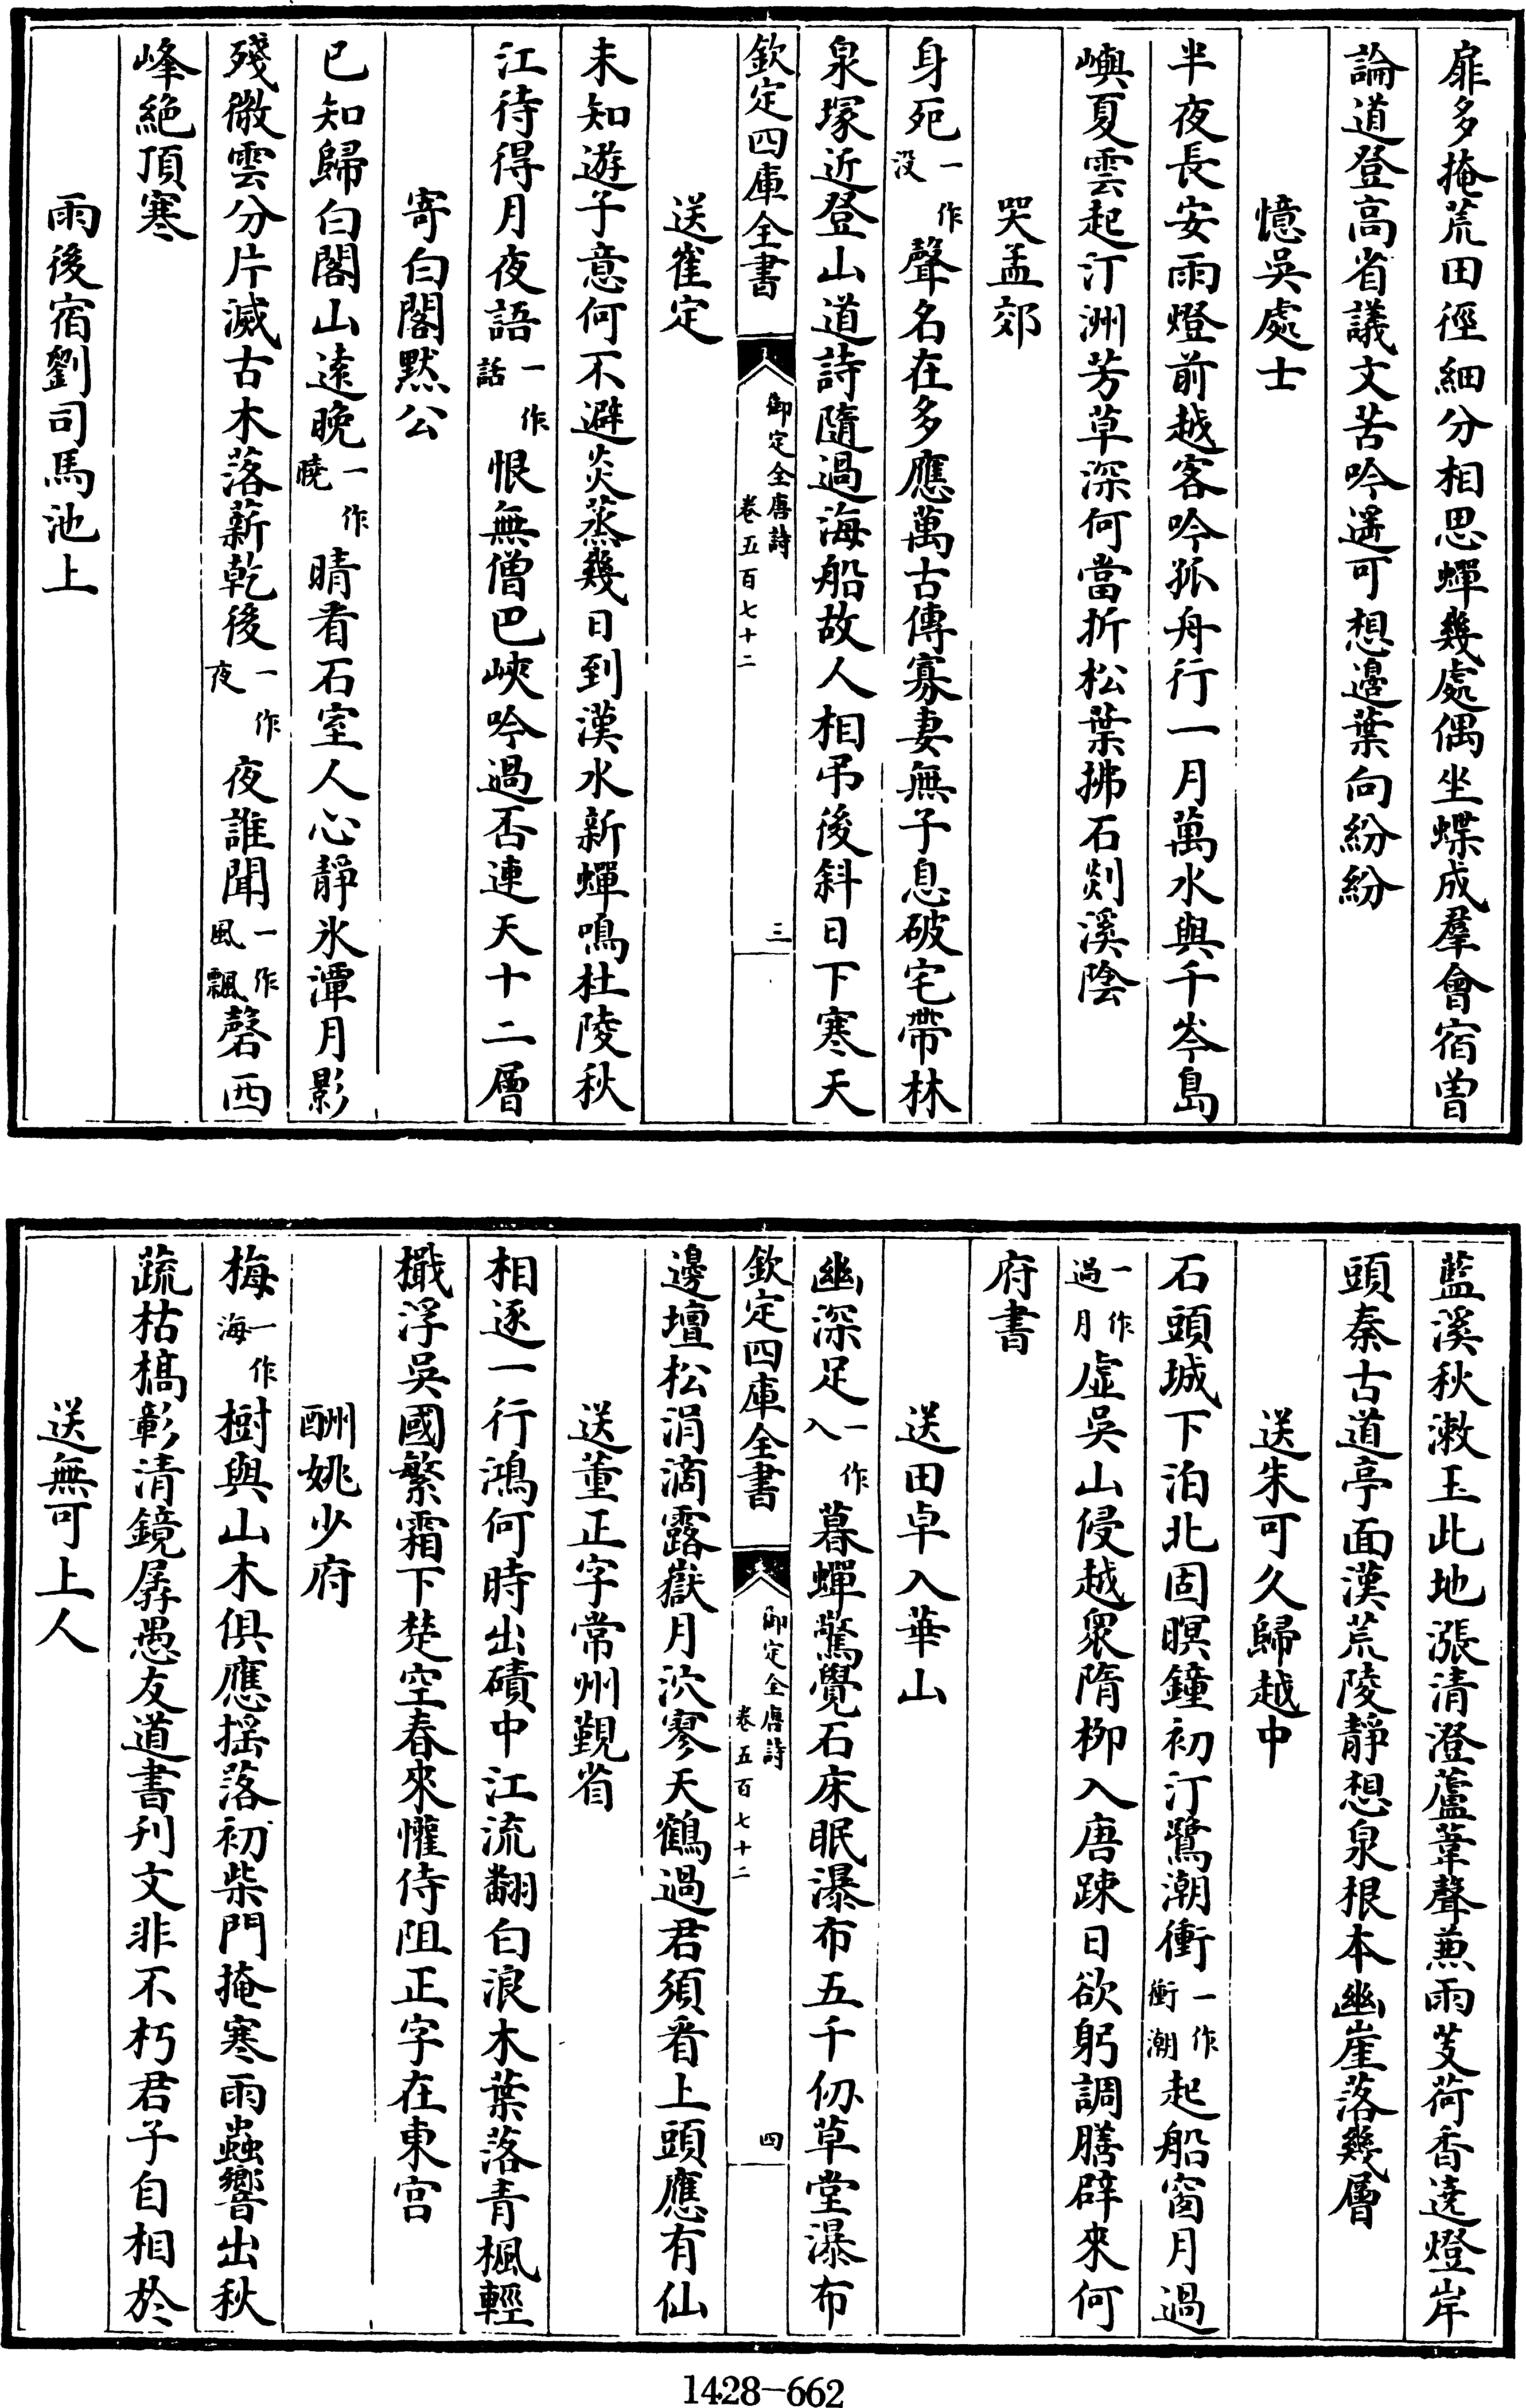 扉多掩荒田徑細分相思蟬幾處偶坐蝶成羣會宿曾
論道登高省議文苦吟遥可想邊葉向紛紛
憶吳處士
半夜長安雨燈前越客吟孤舟行一月萬水與千岑島
嶼夏雲起汀洲芳草深何當折松葉拂石剡溪陰
哭孟郊
身死一作没聲名在多應萬古傳寡妻無子息破宅帶林
泉塚近登山道詩隨過海船故人相弔後斜日下寒天
欽定四庫全書 御定全唐詩 卷五百七十二 三
送崔定
未知遊子意何不避炎蒸幾日到漢水新蟬鳴杜陵秋
江待得月夜語一作話恨無僧巴峽吟過否連天十二層
寄白閣黙公
已知歸白閣山遠晚一作曉晴看石室人心靜氷潭月影
殘微雲分片滅古木落薪乾後一作夜夜誰聞一作風飄磬西
峰絶頂寒
雨後宿劉司馬池上
藍溪秋漱玉此地漲清澄蘆葦聲兼雨芰荷香遶燈岸
頭秦古道亭面漢荒陵靜想泉根本幽崖落幾層
送朱可久歸越中
石頭城下泊北固暝鐘初汀鷺潮衝一作衝潮起船窗月過
一作過月虛吳山侵越衆隋柳入唐踈日欲躬調膳辟來何
府書
送田卓入華山
幽深足一作入暮蟬驚覺石床眠瀑布五千仞草堂瀑布
欽定四庫全書 御定全唐詩 卷五百七十二 四
邊壇松涓滴露嶽月泬寥天鶴過君須看上頭應有仙
送董正字常州覲省
相逐一行鴻何時出磧中江流翻白浪木葉落青楓輕
檝浮吳國繁霜下楚空春來懽侍阻正字在東宫
酬姚少府
梅一作海樹與山木俱應摇落初柴門掩寒雨蟲響出秋
蔬枯槁彰清鏡孱愚友道書刋文非不朽君子自相於
送無可上人
1428-662